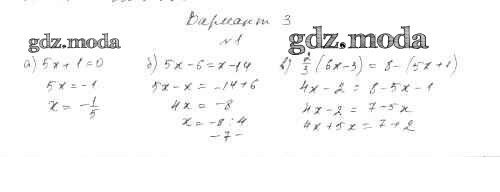 Вариант 3
№1
gdz.moda
gdz.moda
а) 5x + 1 = 0
5x = -1
x = -1/5
б) 5x - 6 = x - 14
5x - x = -14 + 6
4x = -8
x = -8 : 4
в) 2/3 (6x - 3) = 8 - (5x + 1)
4x - 2 = 8 - 5x - 1
4x - 2 = 7 - 5x
4x + 5x = 7 + 2